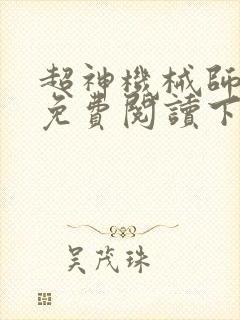 超神機械師
免費閱讀下
吳茂珠